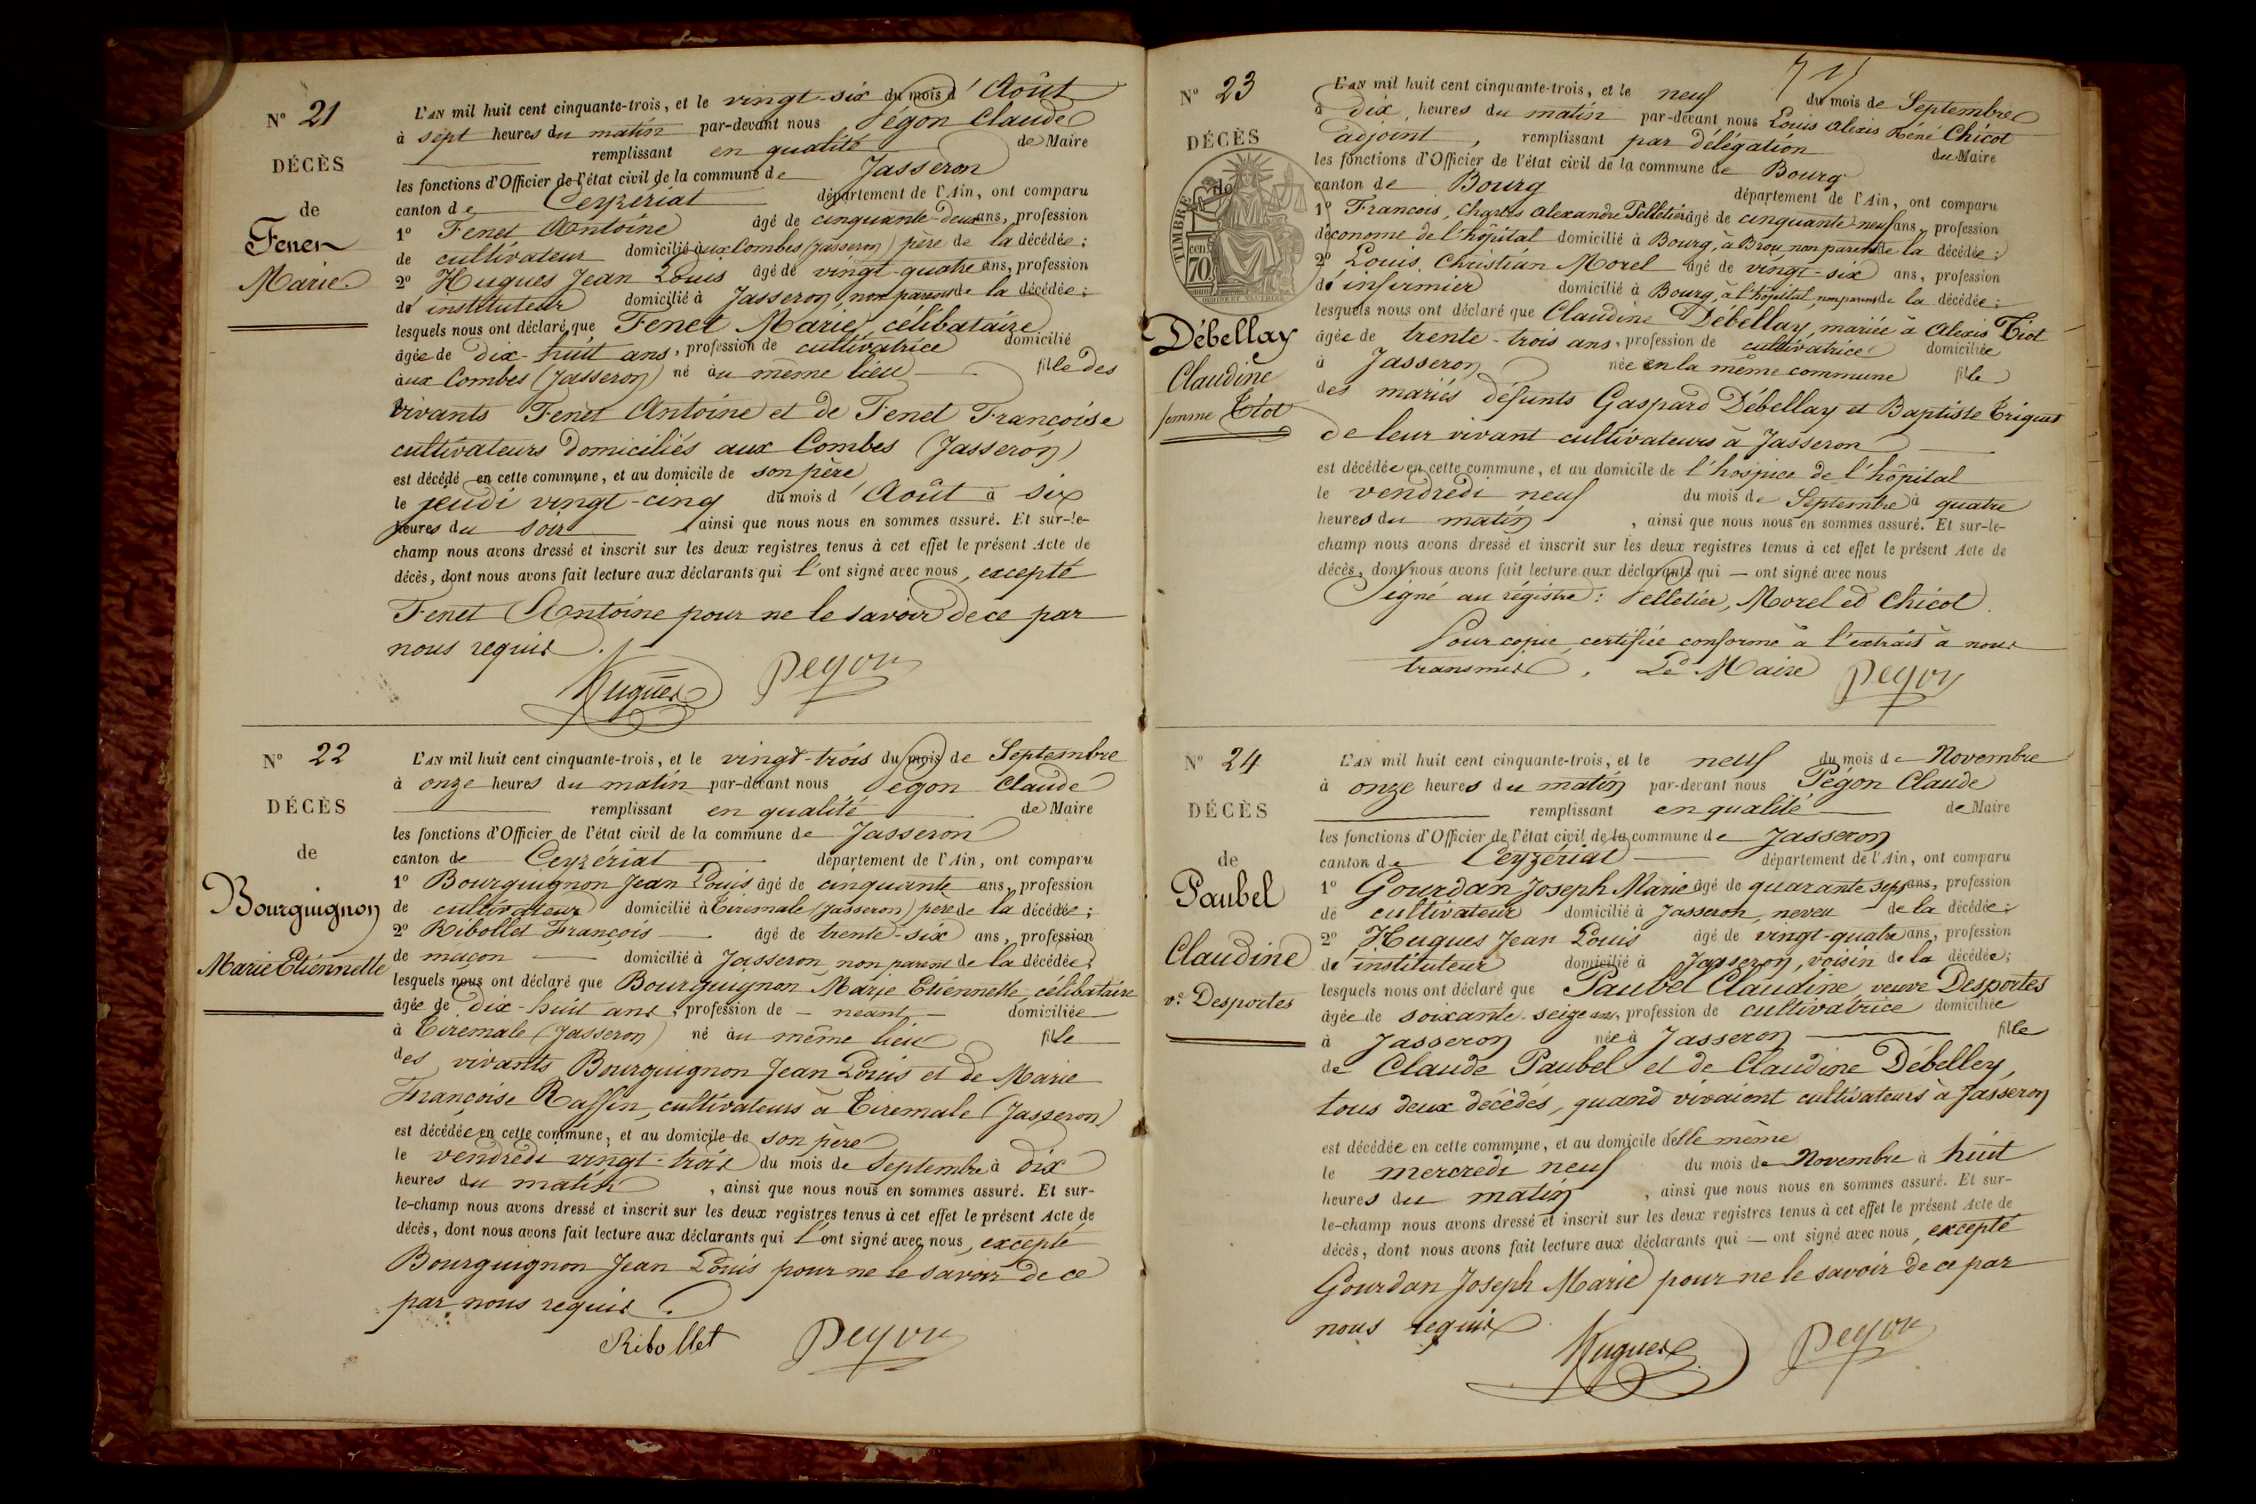 N° 21
DÉCÈS
de
Fenet
Marie
L'AN mil huit cent cinquante-trois, et le vingt-six du mois d'Août
à sept heures du matin par-devant nous Pégon Claude
remplissant en qualité de Maire
les fonctions d'Officier de l'état civil de la commune de Jasseron
canton de Ceyzériat département de l'Ain, ont comparu
1° Fenet Antoine âgé de cinquante-deux ans, profession
de cultivateur domicilié aux Combes (Jasseron) père de la décédée;
2° Hugues Jean Louis âgé de vingt-quatre ans, profession
d'instituteur domicilié à Jasseron, non parent de la décédée;
lesquels nous ont déclaré que Fenet Marie, célibataire
âgée de dix-huit ans, profession de cultivatrice domicilié
aux Combes (Jasseron) né au même lieu fille des
vivants Fenet Antoine et de Fenet Françoise
cultivateurs domiciliés aux Combes (Jasseron)
est décédé en cette commune, et au domicile de son père
le jeudi vingt-cinq du mois d'Août à six
heures du soir ainsi que nous nous en sommes assuré. Et sur-le-
champ nous avons dressé et inscrit sur les deux registres tenus à cet effet le présent Acte de
décès, dont nous avons fait lecture aux déclarants qui l'ont signé avec nous, excepté
Fenet Antoine pour ne le savoir de ce par
nous requis.
Hugues Pegon
N° 22
DÉCÈS
de
Bourguignon
Marie Etiennette
L'AN mil huit cent cinquante-trois, et le vingt-trois du mois de Septembre
à onze heures du matin par-devant nous Pégon Claude
remplissant en qualité de Maire
les fonctions d'Officier de l'état civil de la commune de Jasseron
canton de Ceyzériat département de l'Ain, ont comparu
1° Bourguignon Jean Louis âgé de cinquante ans, profession
de cultivateur domicilié à Tiremale (Jasseron) père de la décédée;
2° Ribollet François âgé de trente-six ans, profession
de maçon domicilié à Jasseron, non parent de la décédée;
lesquels nous ont déclaré que Bourguignon Marie Etiennette, célibataire
âgée de dix-huit ans, profession de - néant - domiciliée
à Tiremale (Jasseron) né au même lieu fille
des vivants Bourguignon Jean Louis et de Marie
Françoise Raffin, cultivateurs à Tiremale (Jasseron)
est décédée en cette commune, et au domicile de son père
le vendredi vingt-trois du mois de Septembre à dix
heures du matin, ainsi que nous nous en sommes assuré. Et sur-
le-champ nous avons dressé et inscrit sur les deux registres tenus à cet effet le présent Acte de
décès, dont nous avons fait lecture aux déclarants qui l'ont signé avec nous, excepté
Bourguignon Jean Louis pour ne le savoir de ce
par nous requis.
Ribollet Pegon
N° 23
DÉCÈS
de
TIMBRE
70
Débellay
Claudine
femme Tiot
L'AN mil huit cent cinquante-trois, et le neuf du mois de Septembre
à dix heures du matin par-devant nous Louis Alexis René Chicot
adjoint, remplissant par délégation du Maire
les fonctions d'Officier de l'état civil de la commune de Bourg
canton de Bourg département de l'Ain, ont comparu
1° François, Charles Alexandre Pelletier âgé de cinquante-neuf ans, profession
d'économe de l'hôpital domicilié à Bourg, à Brou, non parent de la décédée;
2° Louis Christian Morel âgé de vingt-six ans, profession
d'infirmier domicilié à Bourg, à l'hôpital, non parent de la décédée;
lesquels nous ont déclaré que Claudine Débellay, mariée à Alexis Tiot
âgée de trente-trois ans, profession de cultivatrice domiciliée
à Jasseron née en la même commune fille
des mariés défunts Gaspard Débellay et Baptiste Triquet
de leur vivant cultivateurs à Jasseron
est décédée en cette commune, et au domicile de l'hospice de l'hôpital
le vendredi neuf du mois de Septembre à quatre
heures du matin, ainsi que nous nous en sommes assuré. Et sur-le-
champ nous avons dressé et inscrit sur les deux registres tenus à cet effet le présent Acte de
décès, dont nous avons fait lecture aux déclarants qui — ont signé avec nous
Signé au régistre: Pelletier, Morel et Chicot.
Pour copie certifiée conforme à l'extrait à nous
transmis. Le Maire Pegon
N° 24
DÉCÈS
de
Paubel
Claudine
ve Desportes
L'AN mil huit cent cinquante-trois, et le neuf du mois de Novembre
à onze heures du matin par-devant nous Pégon Claude
remplissant en qualité de Maire
les fonctions d'Officier de l'état civil de la commune de Jasseron
canton de Ceyzériat département de l'Ain, ont comparu
1° Gourdan Joseph Marie âgé de quarante sept ans, profession
de cultivateur domicilié à Jasseron, neveu de la décédée;
2° Hugues Jean Louis âgé de vingt-quatre ans, profession
d'instituteur domicilié à Jasseron, voisin de la décédée;
lesquels nous ont déclaré que Paubel Claudine veuve Desportes
âgée de soixante-seize ans, profession de cultivatrice domiciliée
à Jasseron née à Jasseron fille
de Claude Paubel et de Claudine Débelley,
tous deux décédés, quand vivaient cultivateurs à Jasseron
est décédée en cette commune, et au domicile d'elle même
le mercredi neuf du mois de Novembre à huit
heures du matin, ainsi que nous nous en sommes assuré. Et sur-
le-champ nous avons dressé et inscrit sur les deux registres tenus à cet effet le présent Acte de
décès, dont nous avons fait lecture aux déclarants qui — ont signé avec nous, excepté
Gourdan Joseph Marie pour ne le savoir de ce par
nous requis
Hugues Pegon